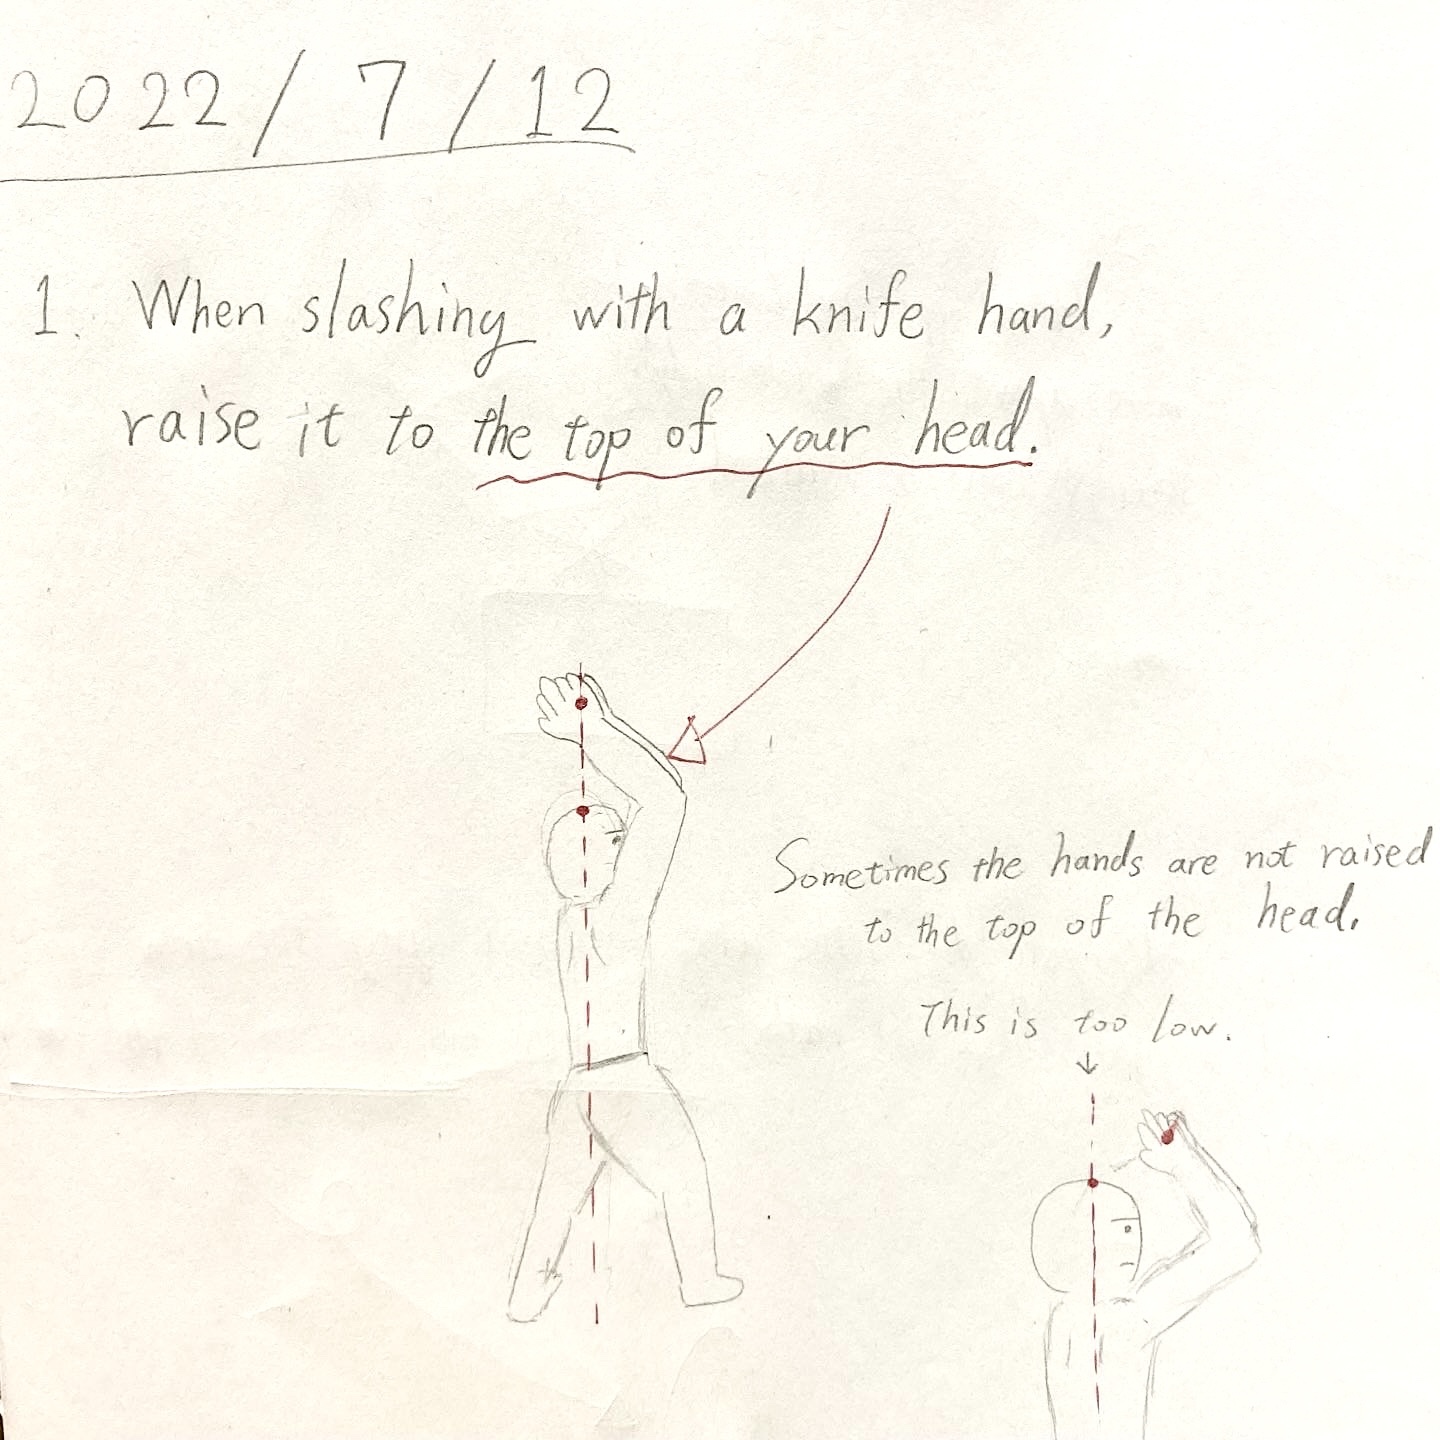 2022/7/12
1. When slashing with a knife hand,
raise it to the top of your head.
Sometimes the hands are not raised
to the top of the head.
This is too low.